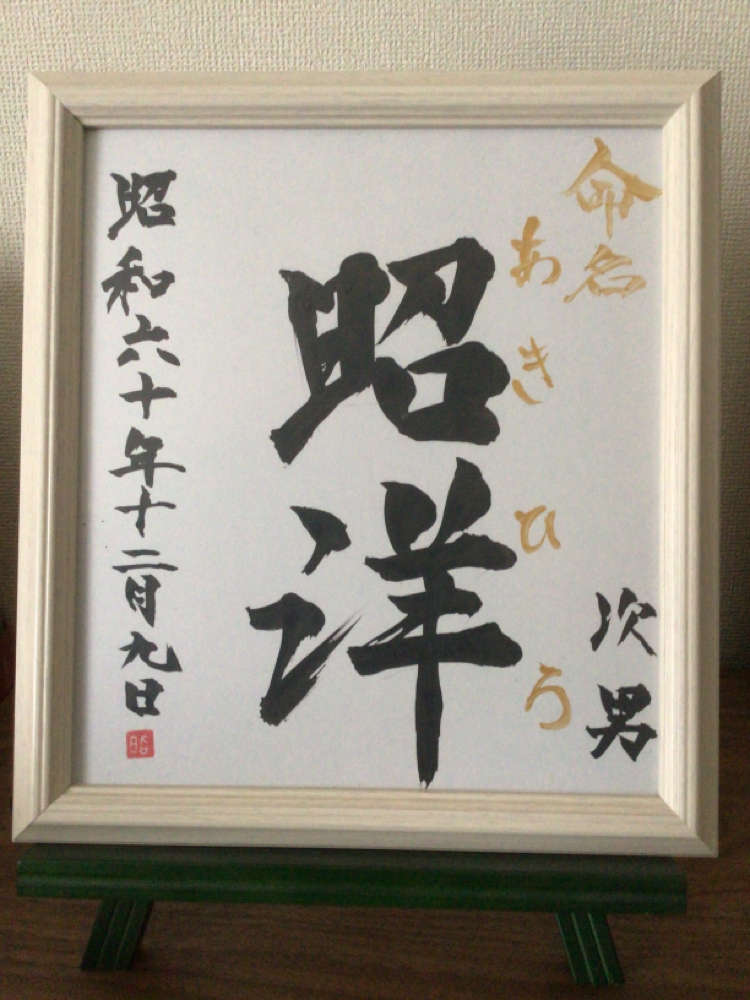 命名
次男
あきひろ
昭洋
昭和六十年十二月九日
昭